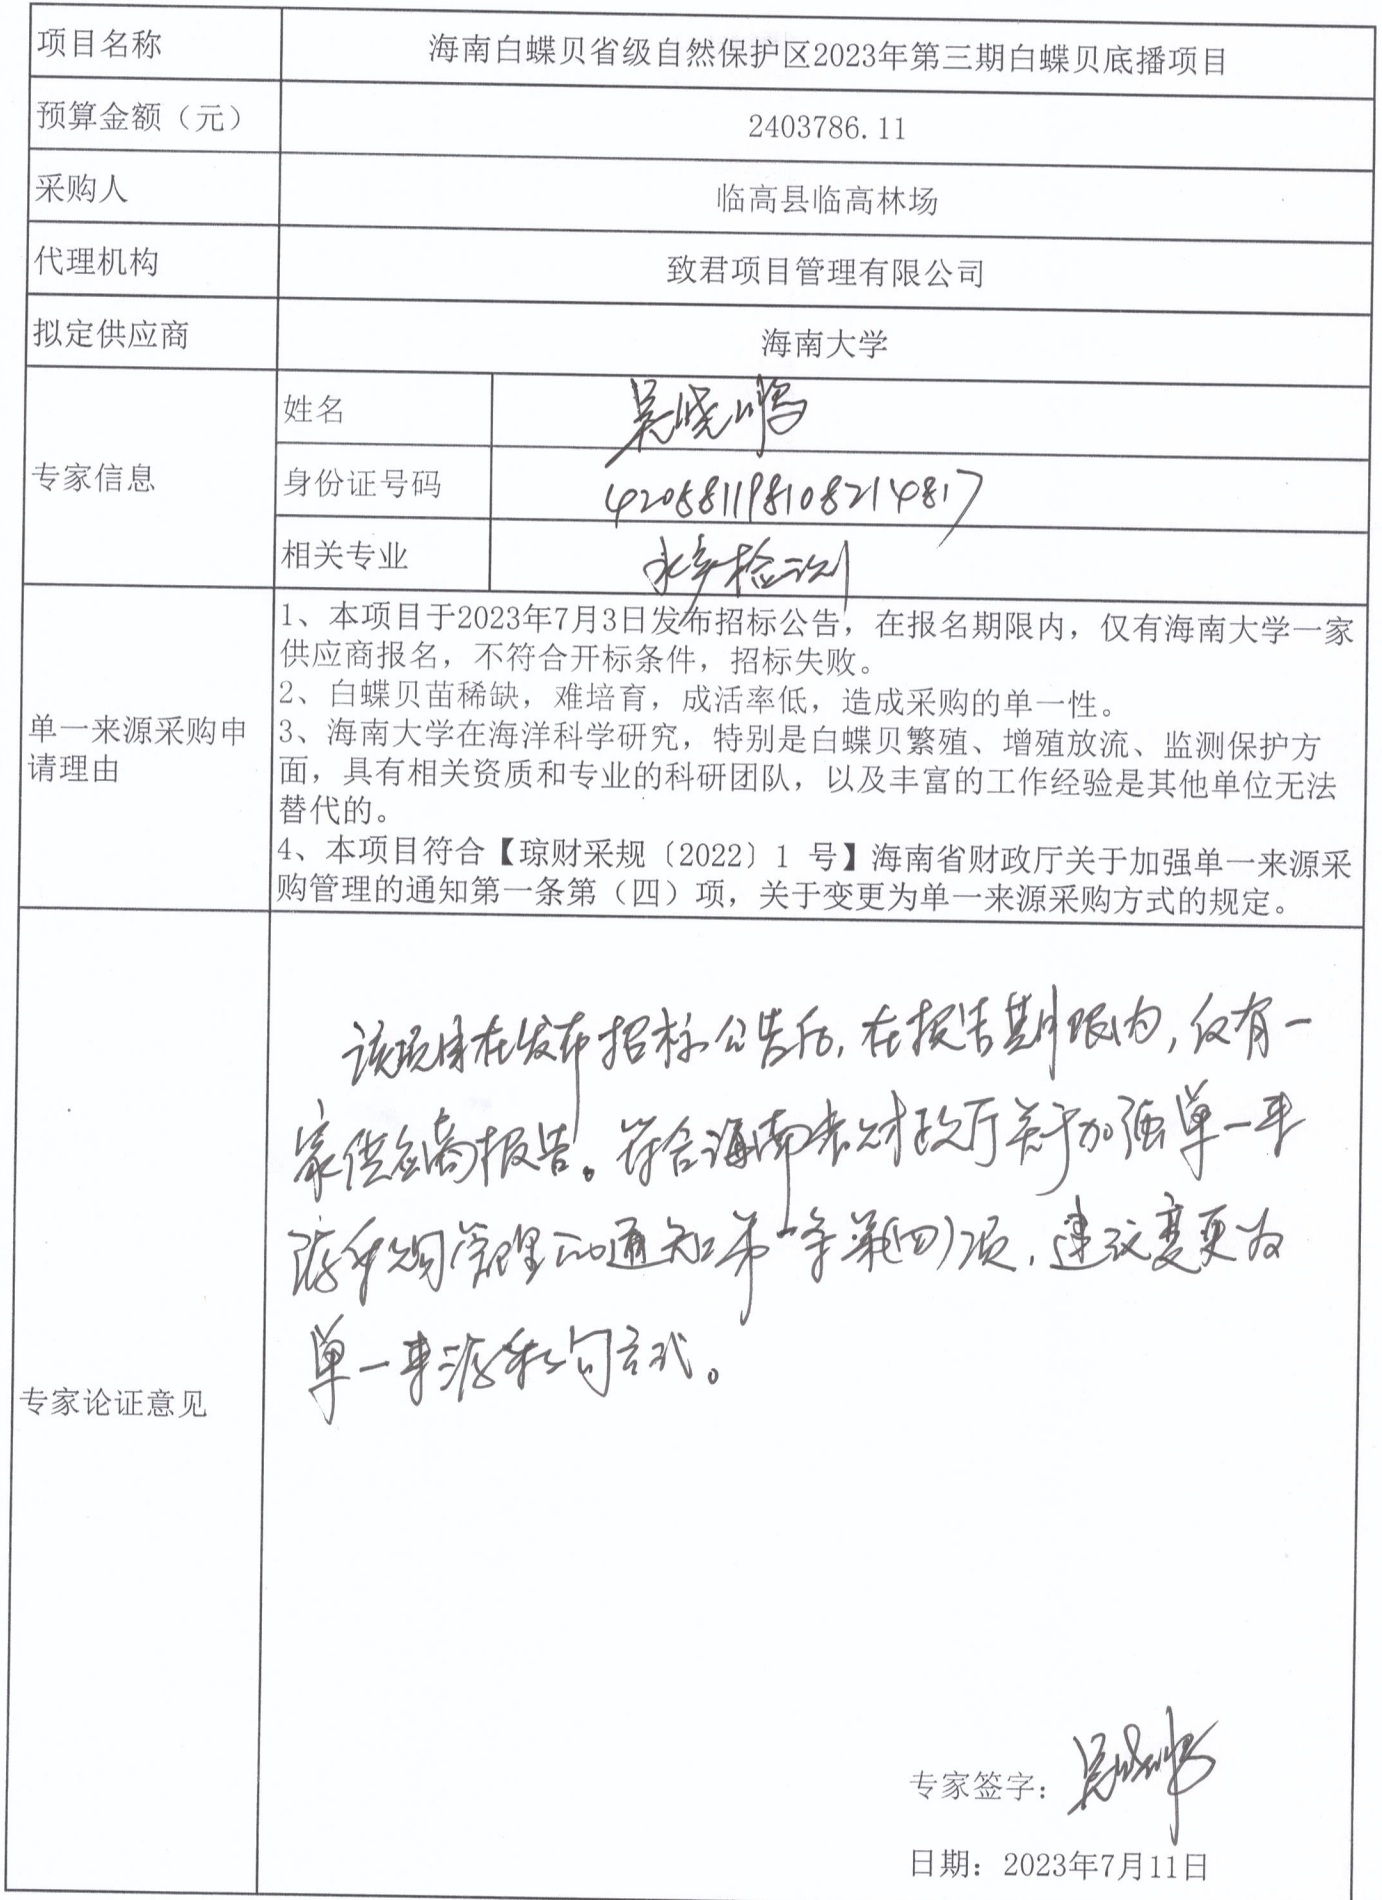 项目名称 海南白蝶贝省级自然保护区2023年第三期白蝶贝底播项目
预算金额（元） 2403786.11
采购人 临高县临高林场
代理机构 致君项目管理有限公司
拟定供应商 海南大学
专家信息
姓名 吴晓鹏
身份证号码 420581198108214817
相关专业 水产检测
单一来源采购申
请理由
1、本项目于2023年7月3日发布招标公告，在报名期限内，仅有海南大学一家
供应商报名，不符合开标条件，招标失败。
2、白蝶贝苗稀缺，难培育，成活率低，造成采购的单一性。
3、海南大学在海洋科学研究，特别是白蝶贝繁殖、增殖放流、监测保护方
面，具有相关资质和专业的科研团队，以及丰富的工作经验是其他单位无法
替代的。
4、本项目符合【琼财采规〔2022〕1 号】海南省财政厅关于加强单一来源采
购管理的通知第一条第（四）项，关于变更为单一来源采购方式的规定。
专家论证意见
该项目在发布招标公告后，在报告期限内，仅有一
家供应商报告。符合海南省财政厅关于加强单一来
源采购管理的通知第一条第(四)项，建议变更为
单一来源采购方式。
专家签字：吴晓鹏
日期：2023年7月11日